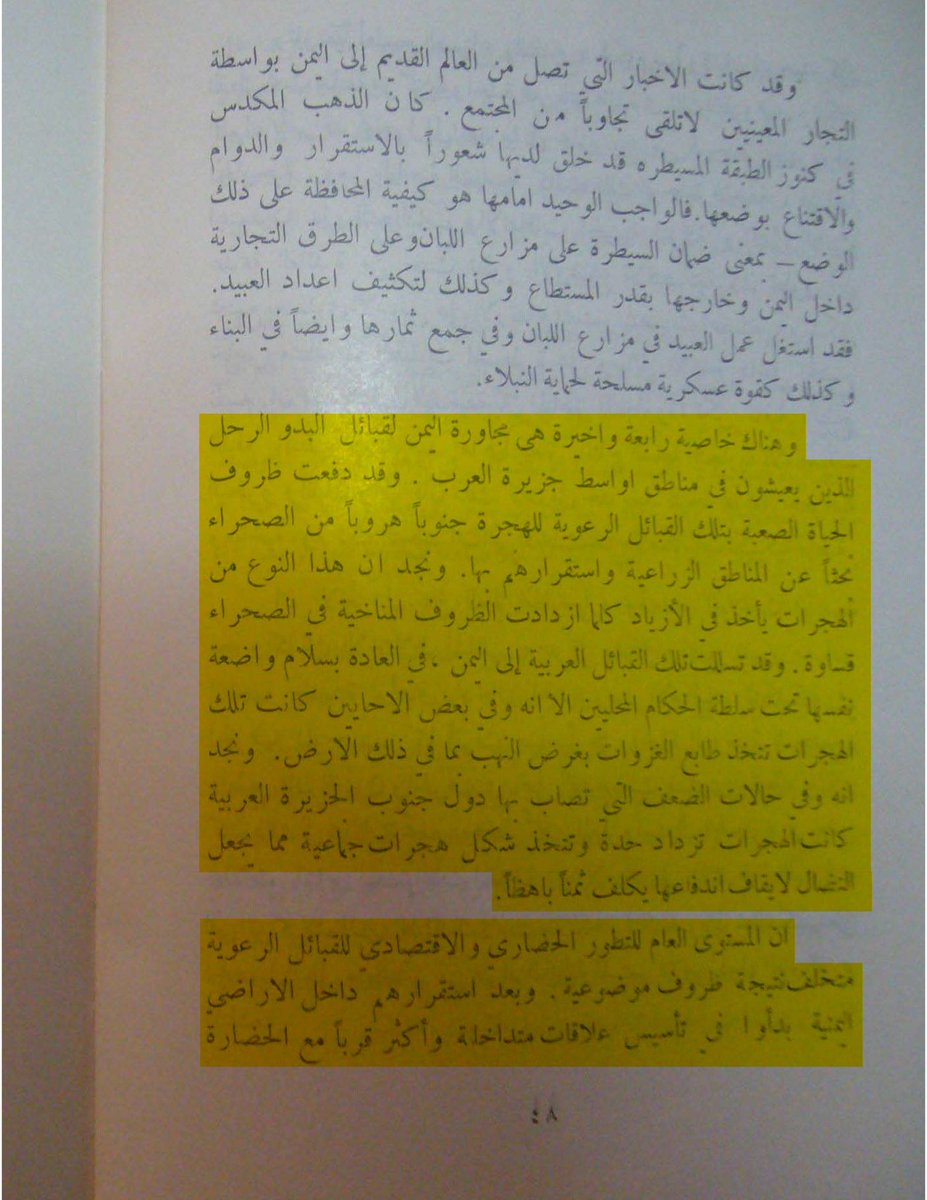 وقد كانت الاخبار التي تصل من العالم القديم إلى اليمن بواسطة
التجار المعينيين لاتلقى تجاوباً من المجتمع . كان الذهب المكدس
في كنوز الطبقة المسيطره قد خلق لديها شعوراً بالاستقرار والدوام
والاقتناع بوضعها.فالواجب الوحيد امامها هو كيفية المحافظة على ذلك
الوضع ــ بمعنى ضمان السيطرة على مزارع اللبان وعلى الطرق التجارية
داخل اليمن وخارجها بقدر المستطاع وكذلك لتكثيف اعداد العبيد.
فقد استغل عمل العبيد في مزارع اللبان وفي جمع ثمارها وايضاً في البناء
وكذلك كقوة عسكرية مسلحة لحماية النبلاء.
وهناك خاصية رابعة واخيرة هى مجاورة اليمن لقبائل البدو الرحل
الذين يعيشون في مناطق اواسط جزيرة العرب . وقد دفعت ظروف
الحياة الصعبة بتلك القبائل الرعوية للهجرة جنوباً هروباً من الصحراء
بحثاً عن المناطق الزراعية واستقرارهم بها. ونجد ان هذا النوع من
الهجرات يأخذ في الأزياد كلما ازدادت الظروف المناخية في الصحراء
قساوة. وقد تسللت تلك القبائل العربية إلى اليمن ،في العادة بسلام واضعة
نفسها تحت سلطة الحكام المحليين الا انه وفي بعض الاحايين كانت تلك
الهجرات تتخذ طابع الغزوات بغرض النهب بما في ذلك الارض. ونجد
انه وفي حالات الضعف التي تصاب بها دول جنوب الجزيرة العربية
كانت الهجرات تزداد حدة وتتخذ شكل هجرات جماعية مما يجعل
النضال لايقاف اندفاعها يكلف ثمناً باهظاً.
ان المستوى العام للتطور الحضاري والاقتصادي للقبائل الرعوية
متخلف نتيجة ظروف موضوعية . وبعد استقرارهم داخل الاراضي
اليمنية بدأوا في تأسيس علاقات متداخلة وأكثر قرباً مع الحضارة
٤٨